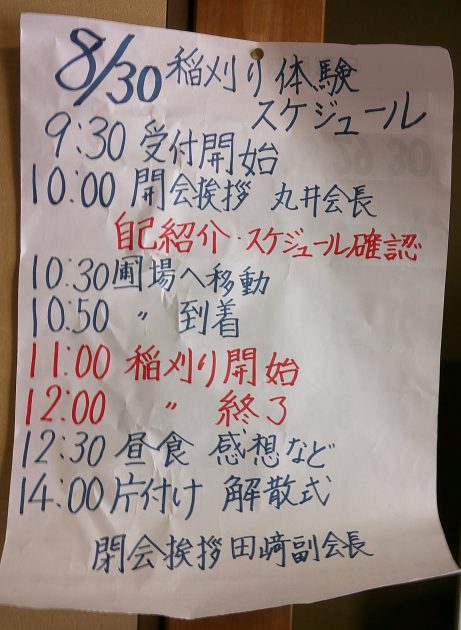 8/30 稲刈り体験
スケジュール
9:30 受付開始
10:00 開会挨拶 丸井会長
自己紹介・スケジュール確認
10:30 圃場へ移動
10:50 〃 到着
11:00 稲刈り開始
12:00 〃 終了
12:30 昼食 感想など
14:00 片付け 解散式
閉会挨拶 田﨑副会長